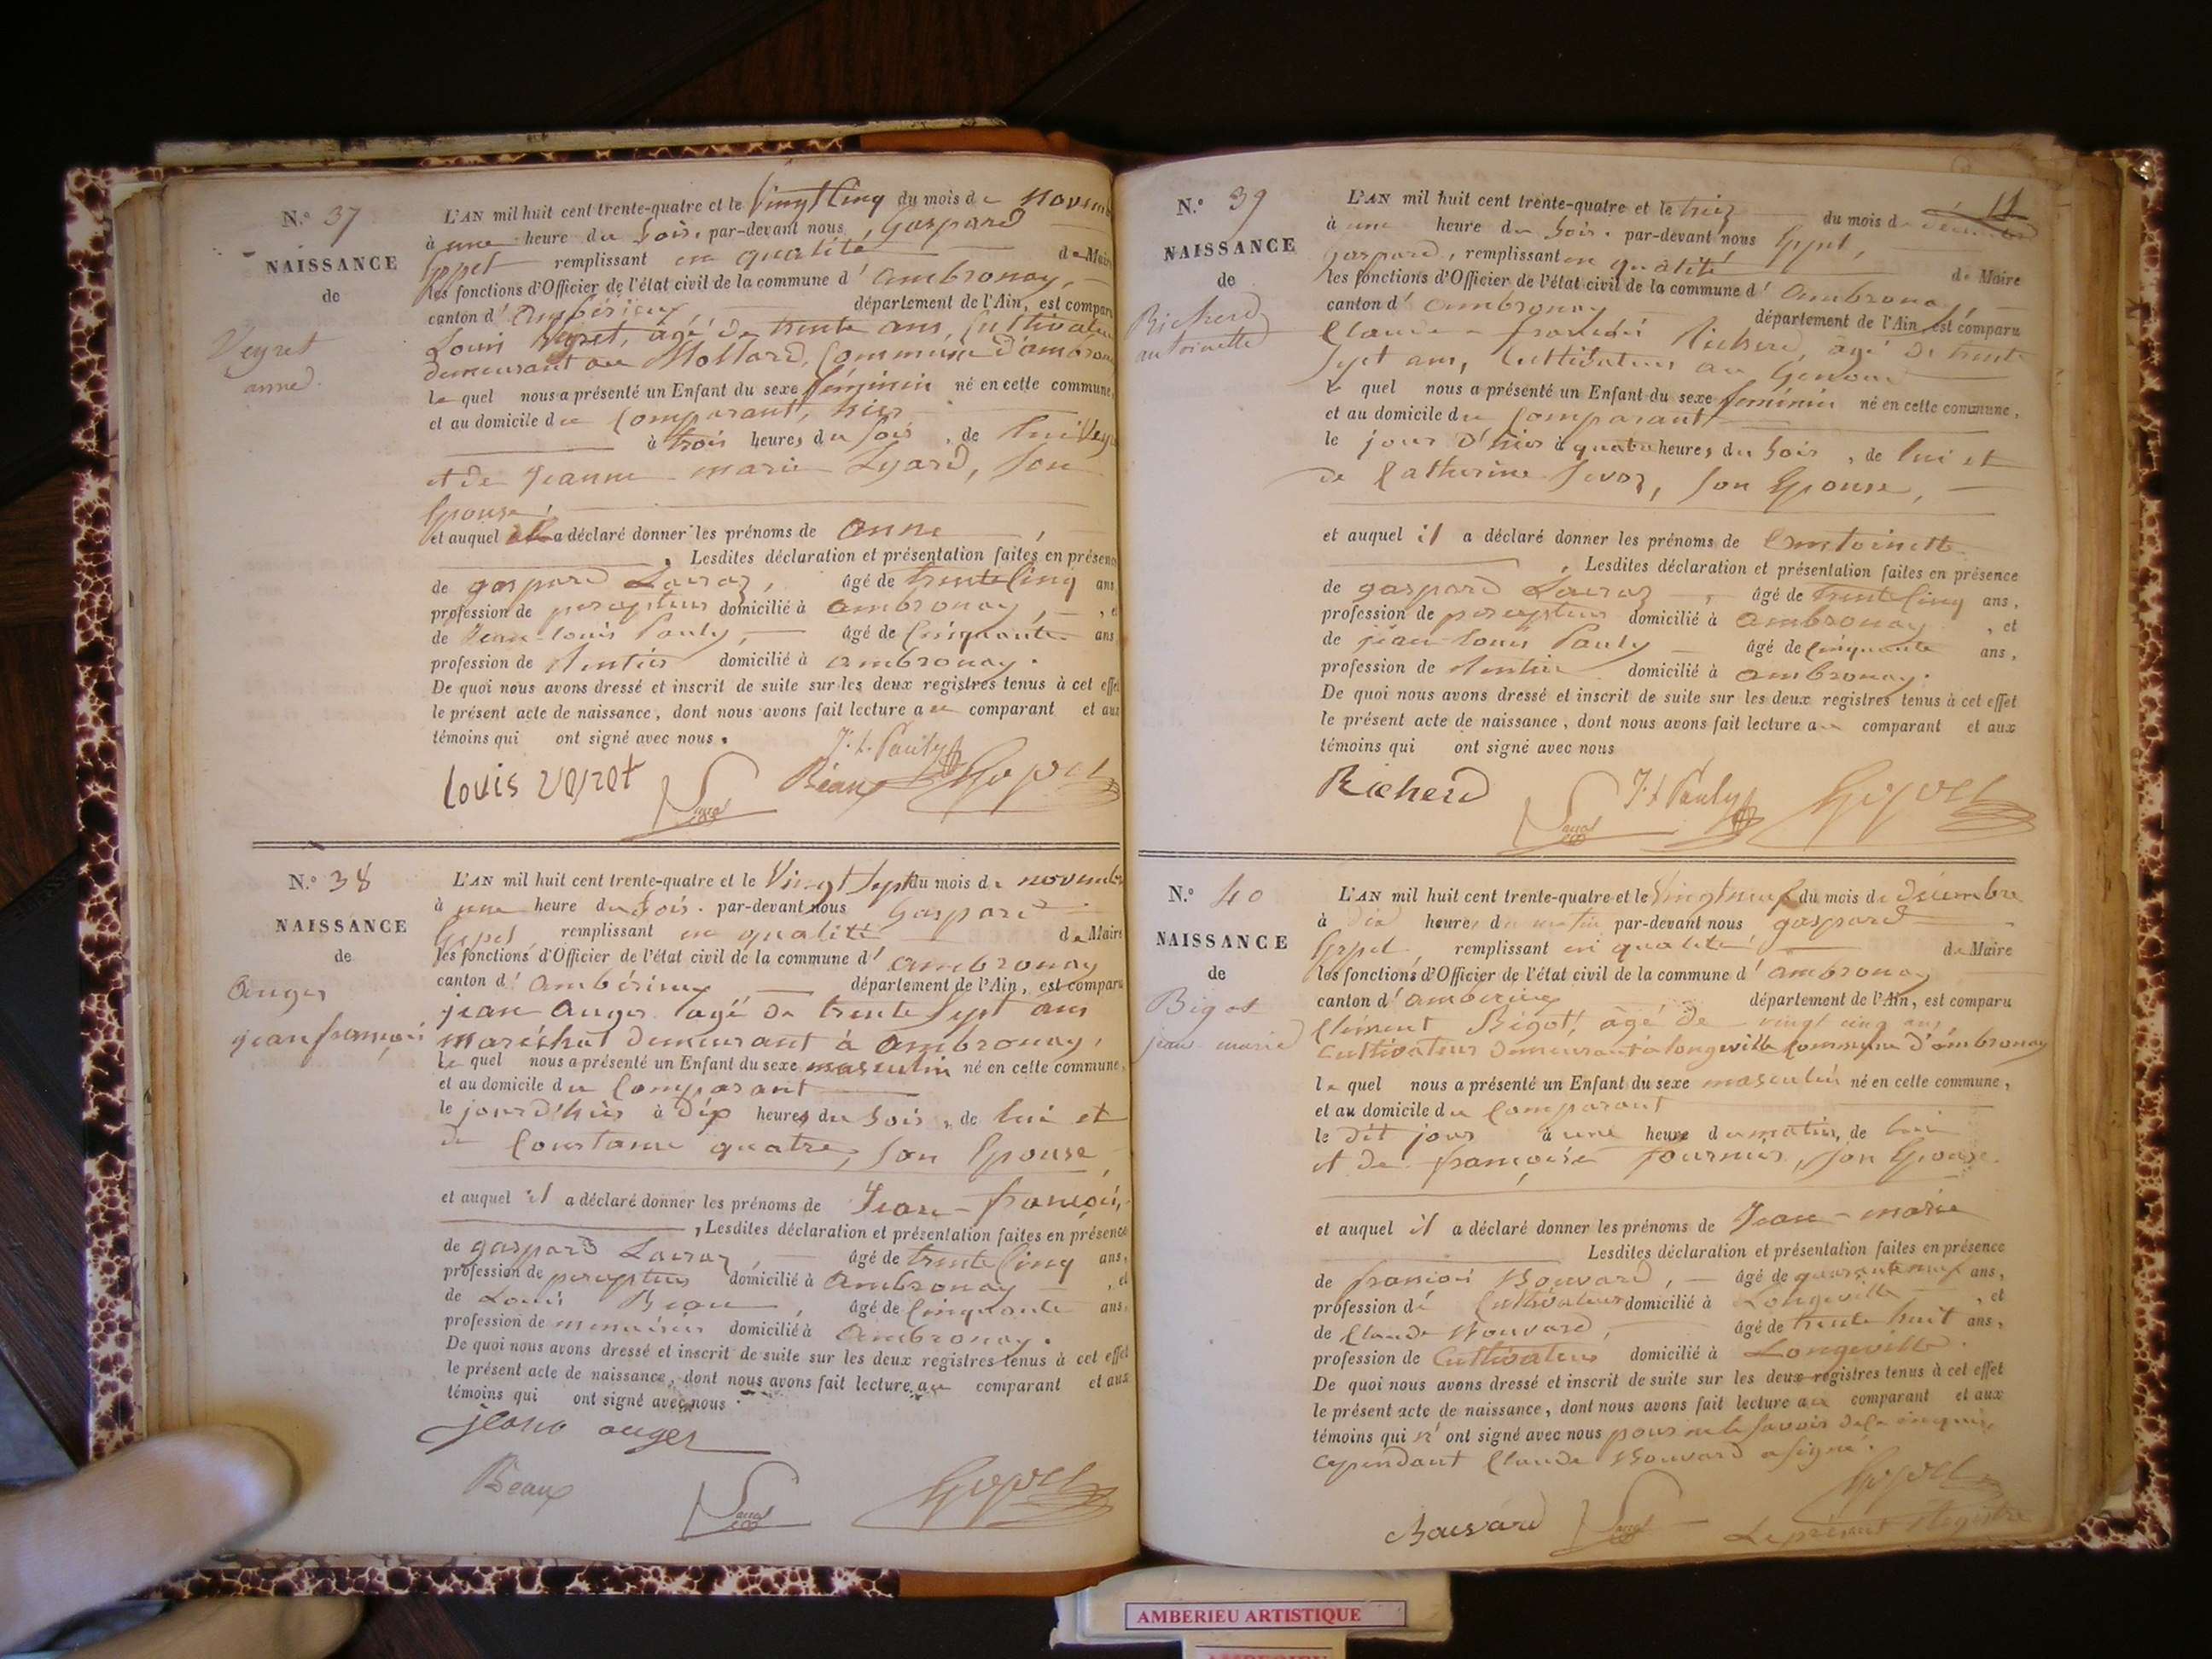 N.º 37
NAISSANCE
de
Veyret
anne
L'AN mil huit cent trente-quatre et le Vingt Cinq du mois de Novemb
à une heure du Soir, par-devant nous, Gaspard
Goppet remplissant en qualité de Maire
les fonctions d'Officier de l'état civil de la commune d'ambronay,
canton d'ambérieux département de l'Ain, est comparu
Louis Veyret, âgé de trente ans, Cultivateur
demeurant au Mollard, Commune d'ambronay
le quel nous a présenté un Enfant du sexe féminin né en cette commune,
et au domicile du Comparant, hier
à trois heures du soir, de lui Vey
et de Jeanne marie Lyard, Son
Epouse,
et auquel il a déclaré donner les prénoms de anne,
, Lesdites déclaration et présentation faites en présence
de gaspard Lavroz, âgé de trente Cinq ans
profession de percepteur domicilié à ambronay, , et
de Jean louis Pauly, âgé de Cinquante ans
profession de Rentier domicilié à ambronay.
De quoi nous avons dressé et inscrit de suite sur les deux registres tenus à cet effet
le présent acte de naissance, dont nous avons fait lecture au comparant et aux
témoins qui ont signé avec nous.
J. L. Pauly
Louis veyret Beaux
N.º 38
NAISSANCE
de
Auger
jean françois
L'AN mil huit cent trente-quatre et le Vingt Sept du mois de novembre
à une heure du Soir. par-devant nous Gaspard
Goppet remplissant en qualité de Maire
les fonctions d'Officier de l'état civil de la commune d'ambronay
canton d'ambérieux département de l'Ain, est comparu
jean auger âgé de trente Sept ans
maréchal demeurant à ambronay,
le quel nous a présenté un Enfant du sexe masculin né en cette commune,
et au domicile du Comparant
le jour d'hier à dix heures du Soir, de lui et
de Constance quatre, Son Epouse,
et auquel il a déclaré donner les prénoms de Jean-françois,
, Lesdites déclaration et présentation faites en présence
de gaspard Lavroz, âgé de trente Cinq ans,
profession de percepteur domicilié à ambronay , et
de Louis Beau, âgé de Cinquante ans,
profession de menuisier domicilié à ambronay.
De quoi nous avons dressé et inscrit de suite sur les deux registres tenus à cet effet
le présent acte de naissance, dont nous avons fait lecture au comparant et aux
témoins qui ont signé avec nous.
jean auger
Beaux
11
N.º 39
NAISSANCE
de
Richerd
antoinette
L'AN mil huit cent trente-quatre et le treiz du mois de
à une heure du Soir. par-devant nous Goppet,
gaspard, remplissant en qualité de Maire
les fonctions d'Officier de l'état civil de la commune d'ambronay,
canton d'ambronay département de l'Ain, est comparu
Claude Richerd, âgé de trente
Sept ans, Cultivateur au
le quel nous a présenté un Enfant du sexe féminin né en cette commune,
et au domicile du Comparant
le jour d'hier à quatre heures du Soir, de lui et
de Catherine , Son Epouse,
et auquel il a déclaré donner les prénoms de antoinette
, Lesdites déclaration et présentation faites en présence
de gaspard Lavroz, âgé de trente Cinq ans,
profession de percepteur domicilié à ambronay , et
de jean louis Pauly âgé de Cinquante ans,
profession de Rentier domicilié à ambronay.
De quoi nous avons dressé et inscrit de suite sur les deux registres tenus à cet effet
le présent acte de naissance, dont nous avons fait lecture au comparant et aux
témoins qui ont signé avec nous
Richerd J. L. Pauly
N.º 40
NAISSANCE
de
Bigot
jean marie
L'AN mil huit cent trente-quatre et le Vingt neuf du mois de décembre
à dix heures du matin par-devant nous gaspard
Goppet remplissant en qualité de Maire
les fonctions d'Officier de l'état civil de la commune d'ambronay
canton d'amberieux département de l'Ain, est comparu
Clément Bigot, âgé de vingt cinq ans,
Cultivateur demeurant à longeville Commune d'ambronay
le quel nous a présenté un Enfant du sexe masculin né en cette commune,
et au domicile du Comparant
le dit jour à une heure du matin, de lui
et de françoise fournier, Son Epouse.
et auquel il a déclaré donner les prénoms de Jean-marie
Lesdites déclaration et présentation faites en présence
de françois Bouvard, âgé de quarante neuf ans,
profession de Cultivateur domicilié à Longeville , et
de Claude Bouvard, âgé de trente huit ans,
profession de Cultivateur domicilié à Longeville.
De quoi nous avons dressé et inscrit de suite sur les deux registres tenus à cet effet
le présent acte de naissance, dont nous avons fait lecture au comparant et aux
témoins qui n'ont signé avec nous pour ne le Savoir de ce enquis
Cependant Claude Bouvard a signé.
Bouvard Le présent Registre
AMBERIEU ARTISTIQUE